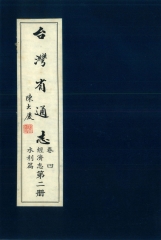 台灣省通志
卷四
經濟志
水利篇
第二冊
陳大慶